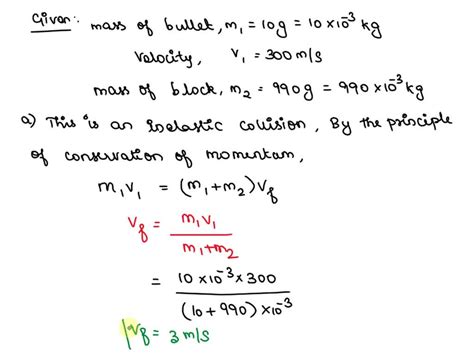 Given: mass of bullet, m₁ = 10g = 10×10⁻³ kg
Velocity, v₁ = 300 m/s
mass of block, m₂ = 990g = 990×10⁻³ kg
a) This is an Inelastic collision, By the principle
of conservation of momentum,
m₁v₁ = (m₁+m₂)v_f
v_f = m₁v₁
m₁+m₂
= 10×10⁻³×300
(10+990)×10⁻³
v_f = 3 m/s